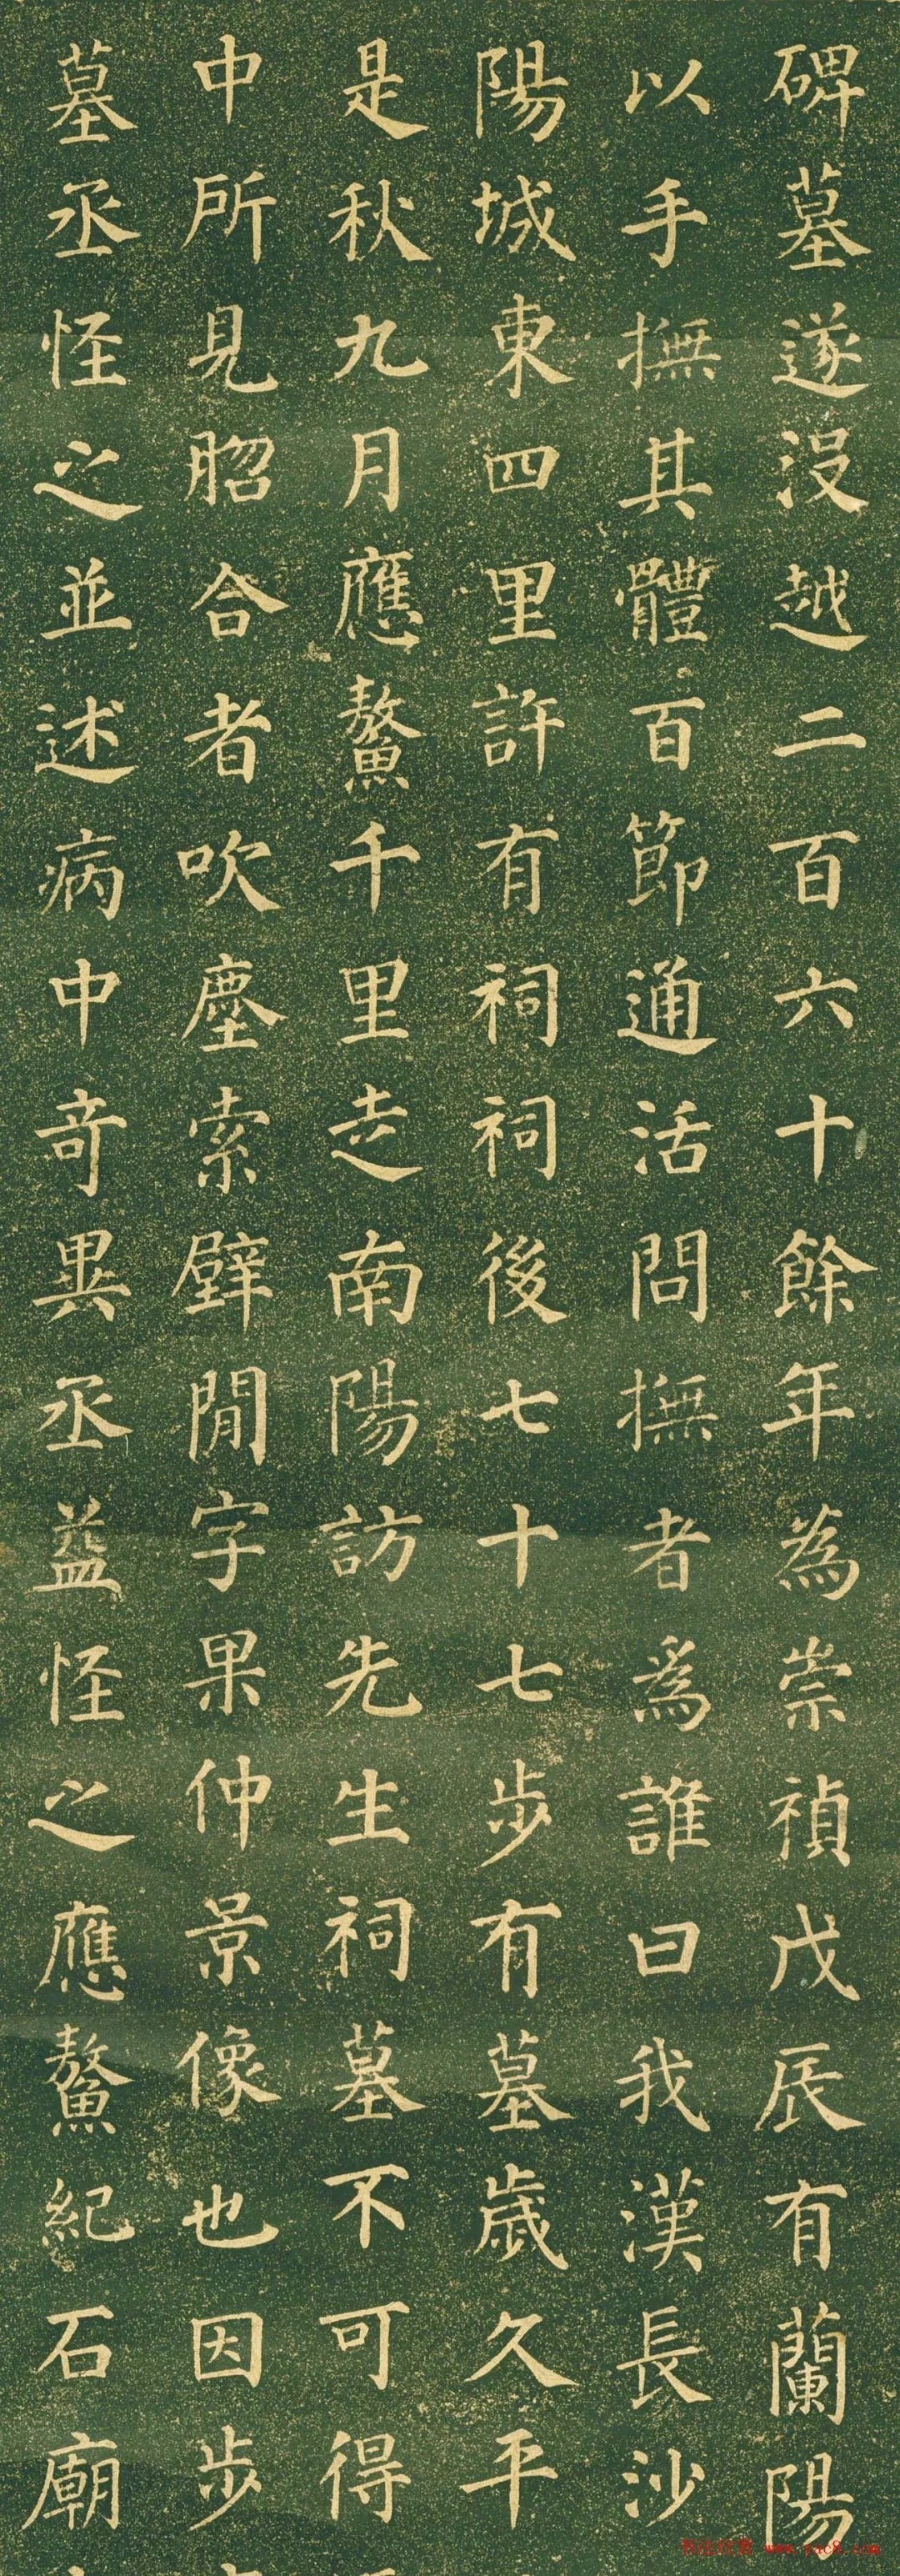 碑墓遂沒越二百六十餘年為崇禎戊辰有蘭陽
以手撫其體百節通活問撫者爲誰曰我漢長沙
陽城東四里許有祠祠後七十七步有墓歲久平
是秋九月應鰲千里走南陽訪先生祠墓不可得
中所見脗合者吹塵索壁閒字果仲景像也因步
墓丞怪之並述病中奇異丞益怪之應鰲紀石廟